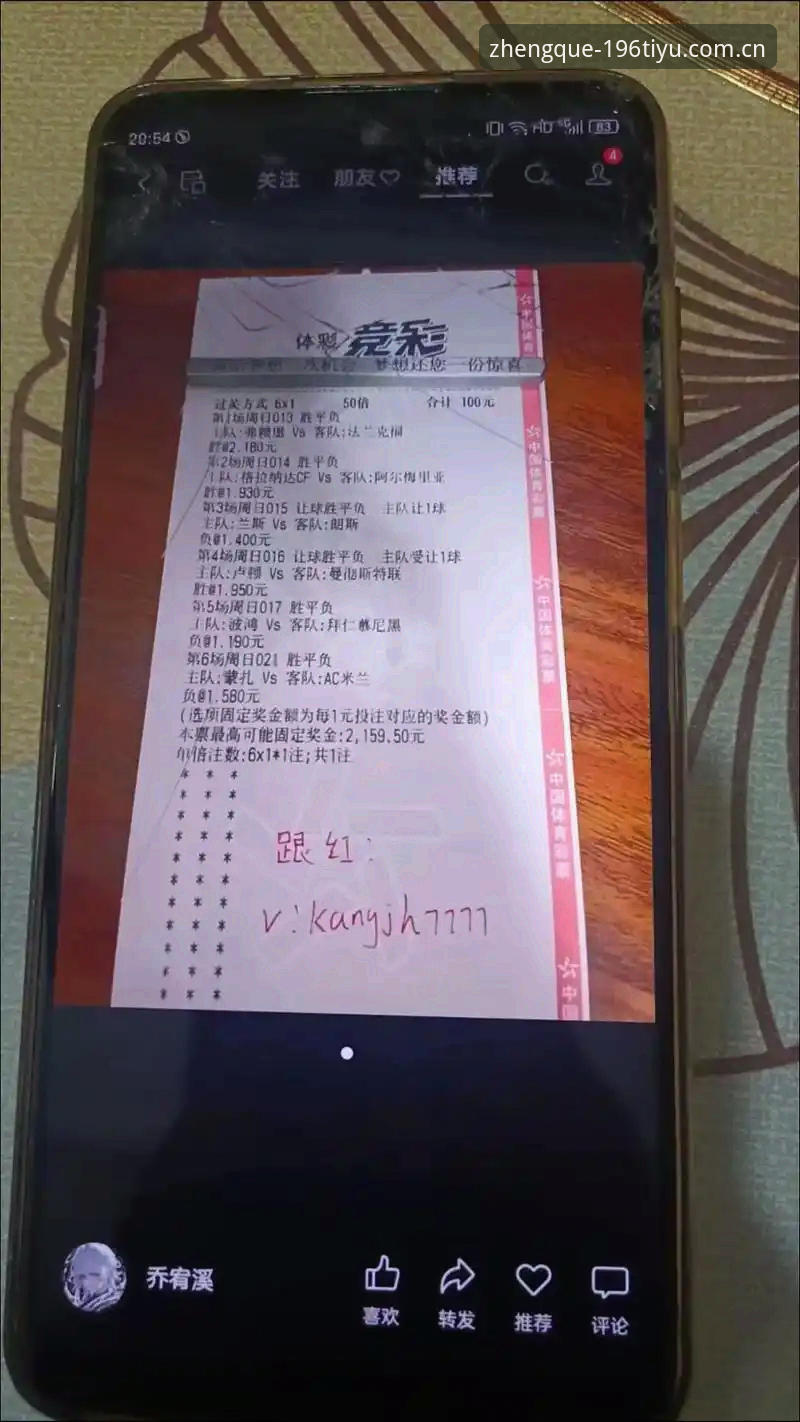 zhengque-196tiyu.com.cn
20:54 HD 5G 83
关注 朋友♡ 推荐 4
体彩 竞彩
梦想还您一份惊喜
过关方式 6x1 50倍 合计 100元
第1场周日013 胜平负
主队:弗赖堡 Vs 客队:法兰克福
胜@2.180元
第2场周日014 胜平负
主队:格拉纳达CF Vs 客队:阿尔梅里亚
胜@1.930元
第3场周日015 让球胜平负 主队让1球
主队:兰斯 Vs 客队:朗斯
负@1.400元
第4场周日016 让球胜平负 主队受让1球
主队:卢顿 Vs 客队:曼彻斯特联
胜@1.950元
第5场周日017 胜平负
主队:波鸿 Vs 客队:拜仁慕尼黑
负@1.190元
第6场周日021 胜平负
主队:蒙扎 Vs 客队:AC米兰
负@1.580元
(选项固定奖金额为每1元投注对应的奖金额)
本票最高可能固定奖金:2,159.50元
单倍注数:6x1*1注;共1注
* * *
* * *
* * *
* * *
* * *
* * *
* * *
* * *
* * *
* * *
* * *
跟红:
v:kangjh7777
中国体育
中国体育彩票
中国体育彩票
中国体育彩票
中国
乔宥溪
喜欢 转发 推荐 评论